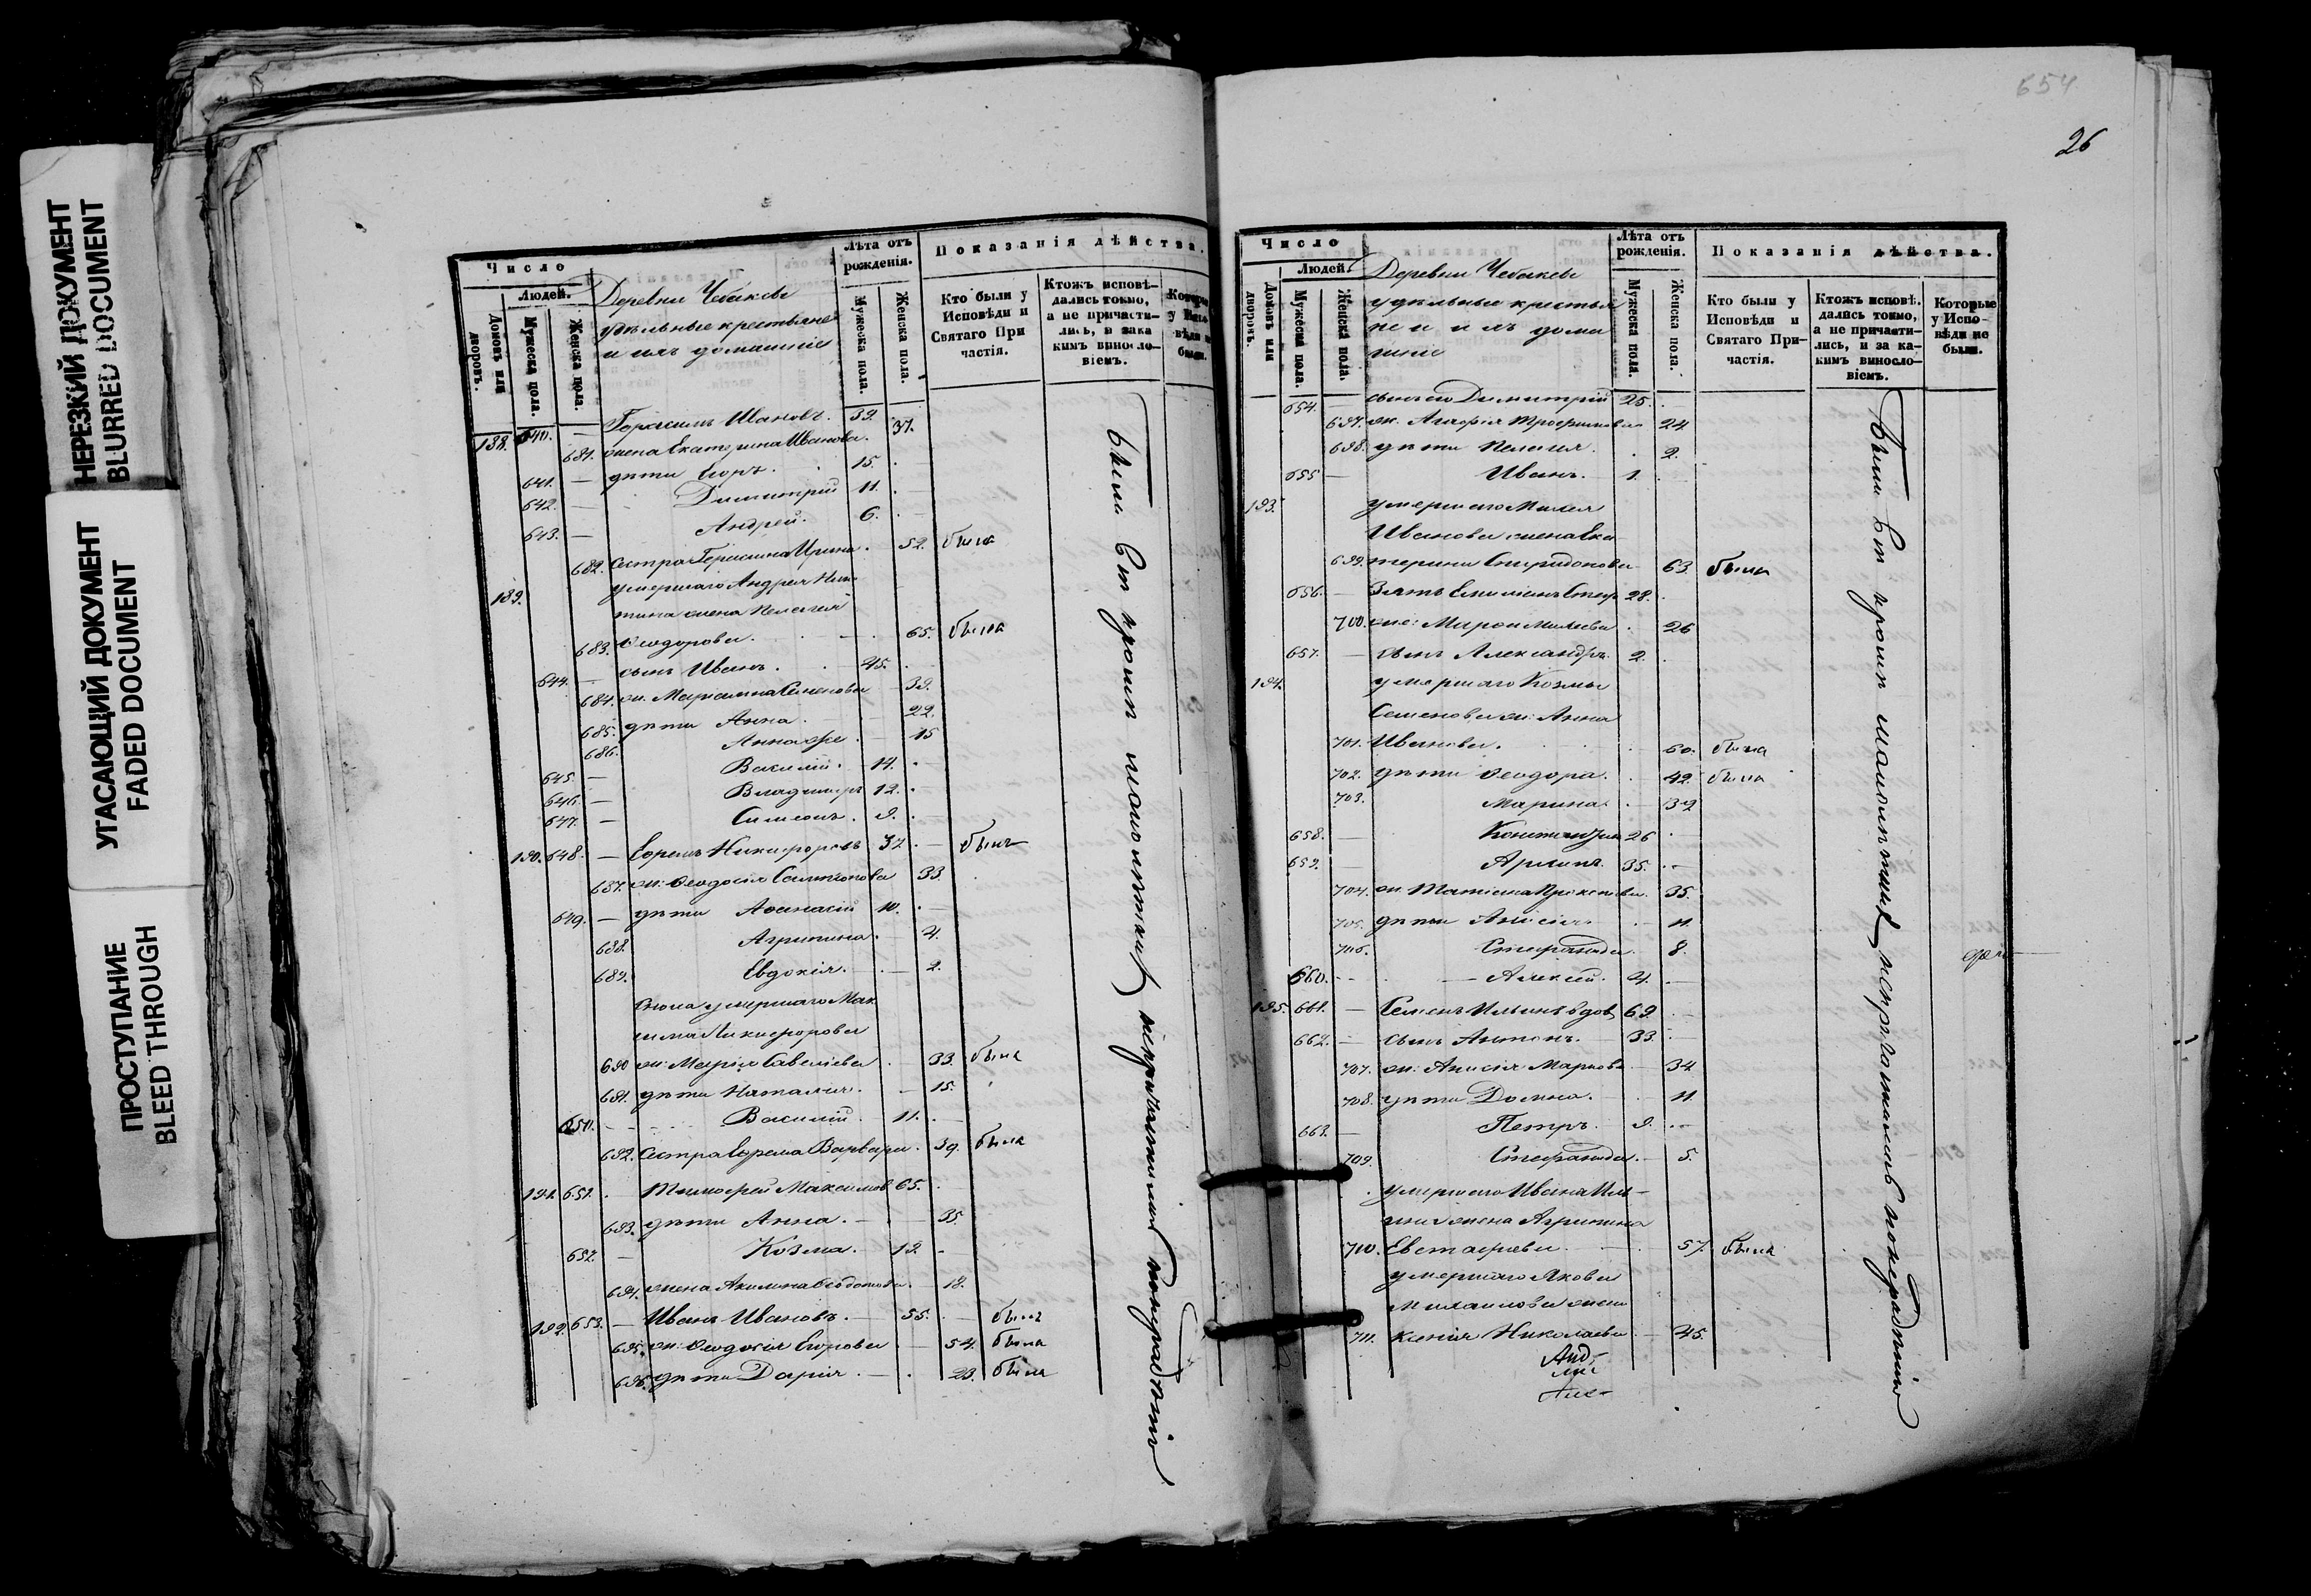 НЕРЕЗКИЙ ДОКУМЕНТ
BLURRED DOCUMENT
УГАСАЮЩИЙ ДОКУМЕНТ
FADED DOCUMENT
ПРОСТУПАНИЕ
BLEED THROUGH
Число
Людей.
Домовъ или дворовъ.
Мужеска пола.
Женска пола.
Деревни Чебаксы
удѣльные крестьяне
и ихъ домашніе
Лѣта отъ рожденія.
Мужеска пола.
Женска пола.
Показанія дѣйства.
Кто были у Исповѣди и Святаго При частія.
Ктожъ исповѣ-дались токмо, а не причасти-лись, и зака кимъ винсло-віемъ.
188. 640. — Герасимъ Ивановъ. 39.
681. жена Екатерина Иванова. 37.
641. — дѣти Егоръ. 15.
642. — Димитрій 11.
643. — Андрей. 6.
682. Сестра Герасима Ирина. 52. была
189. умершаго Андрея Ники
тина жена Пелагія
683. Ѳеодорова. 65. была
644. — сынъ Иванъ. 45.
684. ж. Марьямна Семенова 39.
685. дѣти Анна. 22.
686. Анна же. 15
645. — Василій. 14.
646. — Владимиръ 12.
647. — Симеонъ. 9.
190. 648. — Ефремъ Никифоровъ 37. — былъ
687. ж: Ѳеодосія 33.
649. — дѣти Аѳанасій 10.
688. Агрипина. 4.
689. Евдокія. 2.
Сноха умершаго Мак
сима Никифорова
690 ж: Марія Савельева 33. была
691. дѣти Наталія. 15.
650. Василій. 11.
692. Сестра Ефрема Варвара. 39. была
191. 651. Тимофей Максимов 65.
693. дѣти Анна. 35.
652. — Козма. 19.
694. жена Акилина 18.
192. 653. — Иванъ Ивановъ. 55. былъ
695. ж: Ѳеодосія Егорова 54. была
696. дѣти Дарія. 23. была
Были вси кромѣ малолѣтних непричастились по нерадѣнію
654
26
Число
Людей.
Домовъ или дворовъ.
Мужеска пола.
Женска пола.
Деревни Чебаксы
удѣльные крестья
не и ихъ дома
шніе
Лѣта отъ рожденія.
Мужеска пола.
Женска пола.
Показанія дѣйства.
Кто были у Исповѣди и Святаго При-частія.
Ктожъ исповѣ. дались токмо, а не причасти-лись, и за ка-кимъ винсло-віемъ.
Которые у Испо-вѣди не были.
654. — сынъ его Димитрій 25.
697. ж. Агафія Трофимова 24
698. дѣти Пелагія. 2.
655 — Иванъ. 1.
193. умершаго Михея
Иванова жена Ека
699. терина Спиридонова 63. была
656. — Зять Емиліанъ 28.
700. 26
657. — сынъ Александръ. 2.
194. умершаго Козмы
Семенова ж: Анна
701. Иванова. 60. была
702. дѣти Ѳеодора. 42. была
703. Марина 32
658. — Константин 26
659. — Архипъ. 35.
704. ж. Татіана 35.
705. дѣти Анисія 11.
706. Стефанида. 8.
660. — Алексей. 4.
195. 661. — Семенъ Ильинъ вдов 69.
662. — сынъ Антонъ. 33.
707. ж: Анисія Маркова 34
708. дѣти Домна. 11.
663. — Петръ. 9.
709. Стефанида. 5.
умершаго Ивана Иль-
ина жена Агрипина
710. Евстафьева. 57. была
умершаго Якова
Михайлова жена
711. Ксенія Николаева 45.
Были вси кромѣ малолѣтних непричастились по нерадѣнію